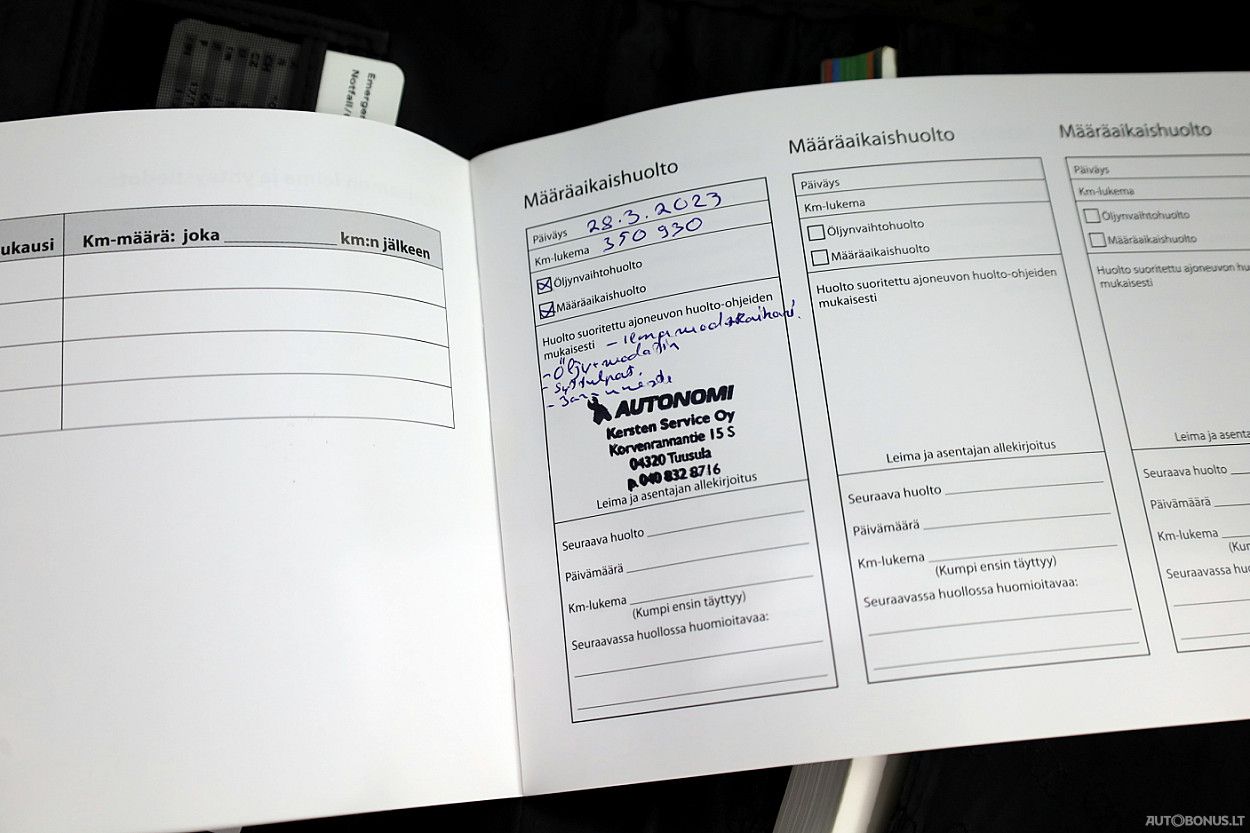 Emergen
Notfall/
ukausi
Km-määrä: joka ____________ km:n jälkeen
Määräaikaishuolto
Päiväys 28.3.2023
Km-lukema 350 930
Öljynvaihtohuolto
Määräaikaishuolto
Huolto suoritettu ajoneuvon huolto-ohjeiden
mukaisesti
- Öljynsuodatin
- Sytytulpat.
- Jarruneste
AUTONOMI
Kersten Service Oy
Korvenrannantie 15 S
04320 Tuusula
p.040 832 8716
Leima ja asentajan allekirjoitus
Seuraava huolto
Päivämäärä
Km-lukema
(Kumpi ensin täyttyy)
Seuraavassa huollossa huomioitavaa:
Määräaikaishuolto
Päiväys
Km-lukema
Öljynvaihtohuolto
Määräaikaishuolto
Huolto suoritettu ajoneuvon huolto-ohjeiden
mukaisesti
Leima ja asentajan allekirjoitus
Seuraava huolto
Päivämäärä
Km-lukema
(Kumpi ensin täyttyy)
Seuraavassa huollossa huomioitavaa:
Määräaikaishuolto
Päiväys
Km-lukema
Öljynvaihtohuolto
Määräaikaishuolto
Huolto suoritettu ajoneuvon hu
mukaisesti
Leima ja asenta
Seuraava huolto
Päivämäärä
Km-lukema
(Kur
Seuraavassa huo
AUTOBONUS.LT